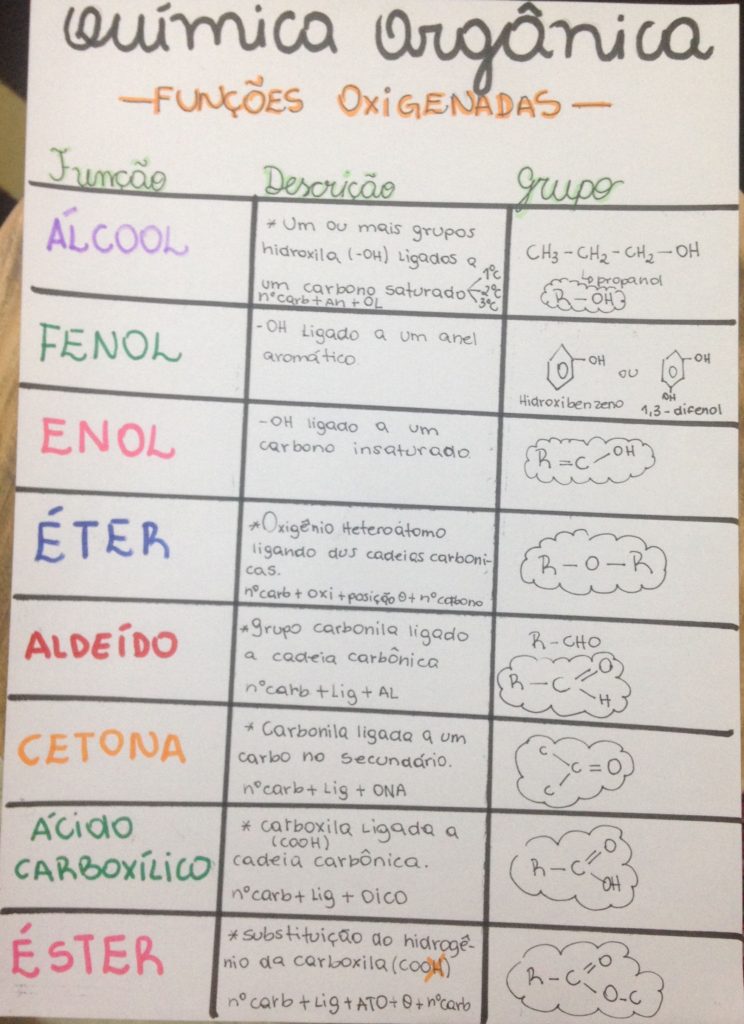 Química Orgânica
— FUNÇÕES OXIGENADAS —
Função Descrição Grupo
ÁLCOOL
* Um ou mais grupos
hidroxila (-OH) Ligados a
um carbono saturado
1ºC
2ºC
3ºC
nº carb + AN + OL
CH3 - CH2 - CH2 - OH
↳ propanol
R - OH
FENOL
-OH Ligado a um anel
aromático.
OH ou OH
OH
Hidroxibenzeno 1,3-difenol
ENOL
-OH ligado a um
carbono insaturado
R = C - OH
ÉTER
* Oxigênio Heteroátomo
ligando dus cadeias carboni-
cas.
nº carb + oxi + posição θ + nº carbono
R - O - R
ALDEÍDO
* grupo carbonila ligado
a cadeia carbônica
nº carb + Lig + AL
R - CHO
R - C = O
H
CETONA
* Carbonila ligada a um
carbo no secundário.
nº carb + Lig + ONA
C
C = O
C
ÁCIDO
CARBOXÍLICO
* carboxila Ligada a
(COOH)
cadeia carbônica.
nº carb + Lig + OICO
R - C = O
OH
ÉSTER
* substituição do hidrogê-
nio da carboxila (COOH)
nº carb + Lig + ATO + θ + nº carb
R - C = O
O - C